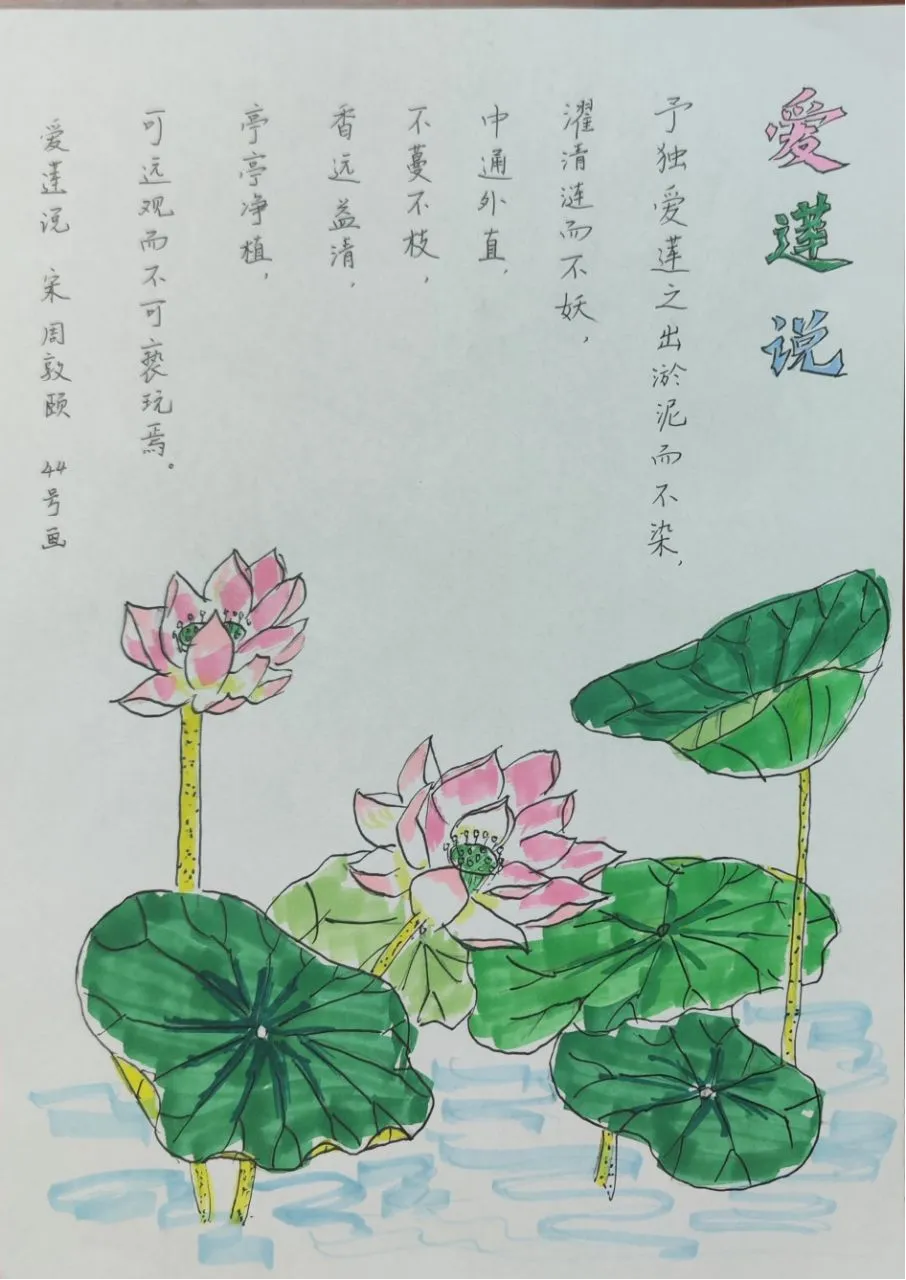 爱莲说
予独爱莲之出淤泥而不染，
濯清涟而不妖，
中通外直，
不蔓不枝，
香远益清，
亭亭净植，
可远观而不可亵玩焉。
爱莲说 宋 周敦颐 44号画